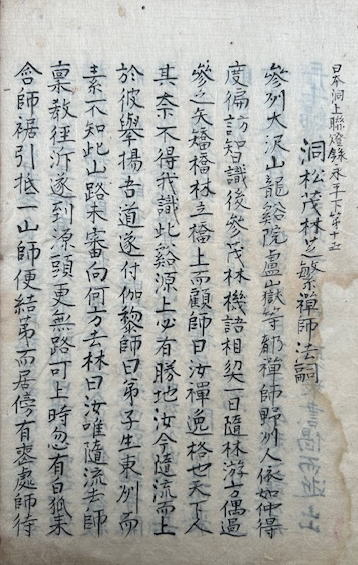 日本洞上聯燈錄永平下第十五
洞松茂林芝繁禪師法嗣
參列大沢山龍谿院盧嶽等都禪師野列人依如仲得
度徧訪智識後參茂林機語相契一日隨林游方偶過
參之矢矯橋林立橋上而顧師曰汝禪逸格也天下人
其奈不得我識此谿源上必有勝地汝今隨流而上
於彼舉揚吾道遂付伽黎師曰弟子生東列而
素不知此山路未審向何方去林曰汝唯隨流去師
稟教徑泝遂到源頭更無路可上時忽有白狐来
含師裾引抵一山師便結茅而居傍有靈處師待